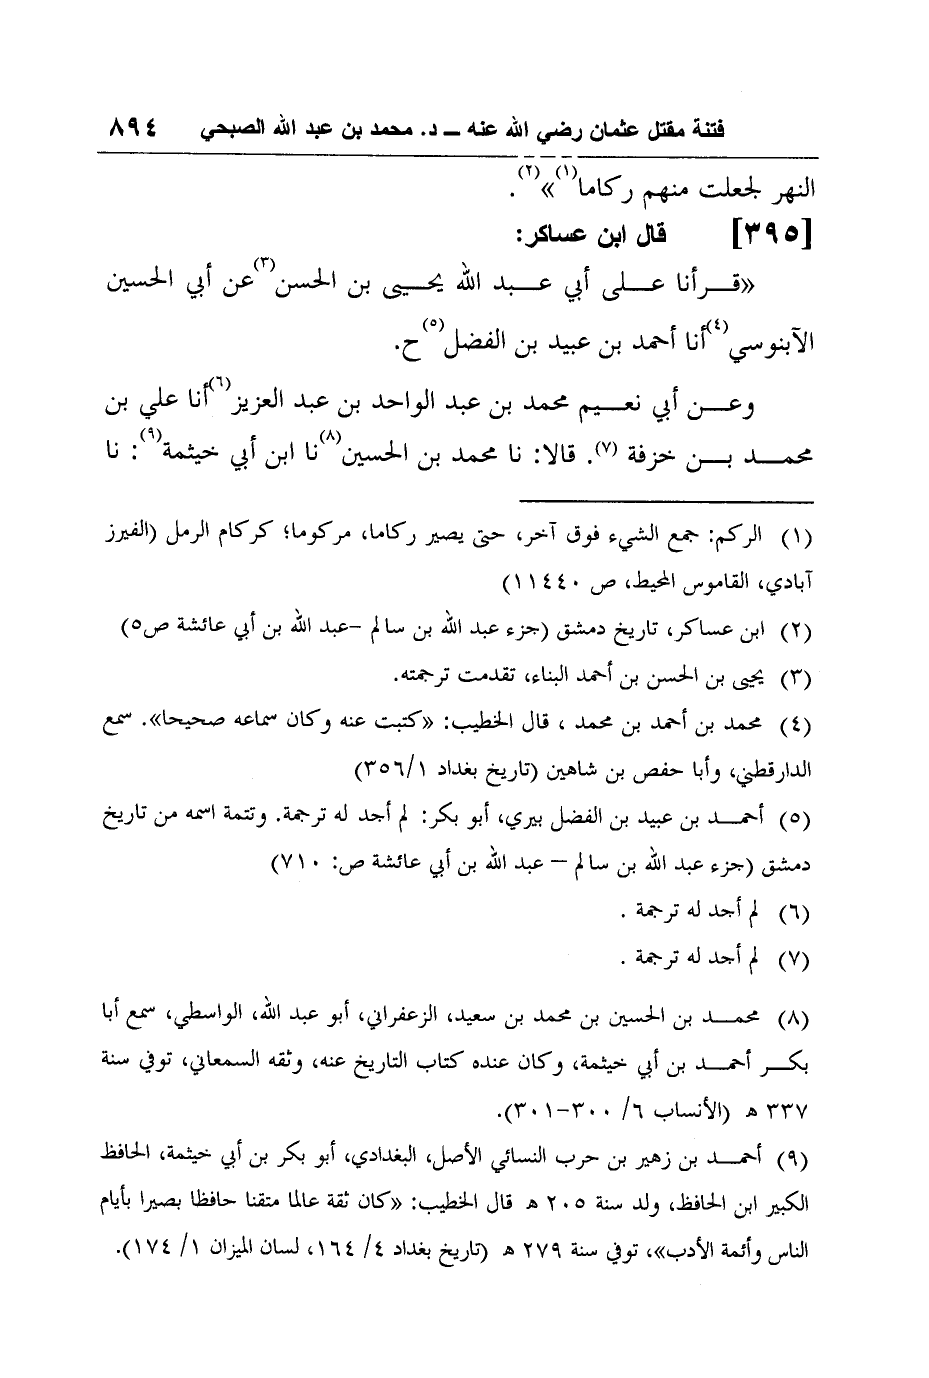 فتنة مقتل عثمان رضي الله عنه – د. محمد بن عبد الله الصبحي ٨٩٤
النهر لجعلت منهم ركاما(١)»(٢).
[٣٩٥] قال ابن عساكر:
«قـــرأنا علـــى أبي عـــبد الله يحـــيى بن الحسن(٣)عن أبي الحسين
الآبنوسي(٤)أنا أحمد بن عبيد بن الفضل(٥)ح.
وعـــن أبي نعـــيم محمد بن عبد الواحد بن عبد العزيز(٦)أنا علي بن
محمـــد بـــن خزفة (٧). قالا: نا محمد بن الحسين(٨)نا ابن أبي خيثمة(٩): نا
(١) الركم: جمع الشيء فوق آخر، حتى يصير ركاما، مركوما؛ كركام الرمل (الفيرز
آبادي، القاموس المحيط، ص ١١٤٤٠)
(٢) ابن عساكر، تاريخ دمشق (جزء عبد الله بن سالم -عبد الله بن أبي عائشة ص٥)
(٣) يحيى بن الحسن بن أحمد البناء، تقدمت ترجمته.
(٤) محمد بن أحمد بن محمد ، قال الخطيب: «كتبت عنه وكان سماعه صحيحا». سمع
الدارقطني، وأبا حفص بن شاهين (تاريخ بغداد ٣٥٦/١)
(٥) أحمـــد بن عبيد بن الفضل بيري، أبو بكر: لم أجد له ترجمة. وتتمة اسمه من تاريخ
دمشق (جزء عبد الله بن سالم – عبد الله بن أبي عائشة ص: ٧١٠)
(٦) لم أجد له ترجمة .
(٧) لم أجد له ترجمة .
(٨) محمـــد بن الحسين بن محمد بن سعيد، الزعفراني، أبو عبد الله، الواسطي، سمع أبا
بكـــر أحمـــد بن أبي خيثمة، وكان عنده كتاب التاريخ عنه، وثقه السمعاني، توفي سنة
٣٣٧ هـ (الأنساب ٦/ ٣٠٠-٣٠١).
(٩) أحمـــد بن زهير بن حرب النسائي الأصل، البغدادي، أبو بكر بن أبي خيثمة، الحافظ
الكبير ابن الحافظ، ولد سنة ٢٠٥ هـ قال الخطيب: «كان ثقة عالما متقنا حافظا بصيرا بأيام
الناس وأئمة الأدب»، توفي سنة ٢٧٩ هـ (تاريخ بغداد ٤/ ١٦٤، لسان الميزان ١/ ١٧٤).